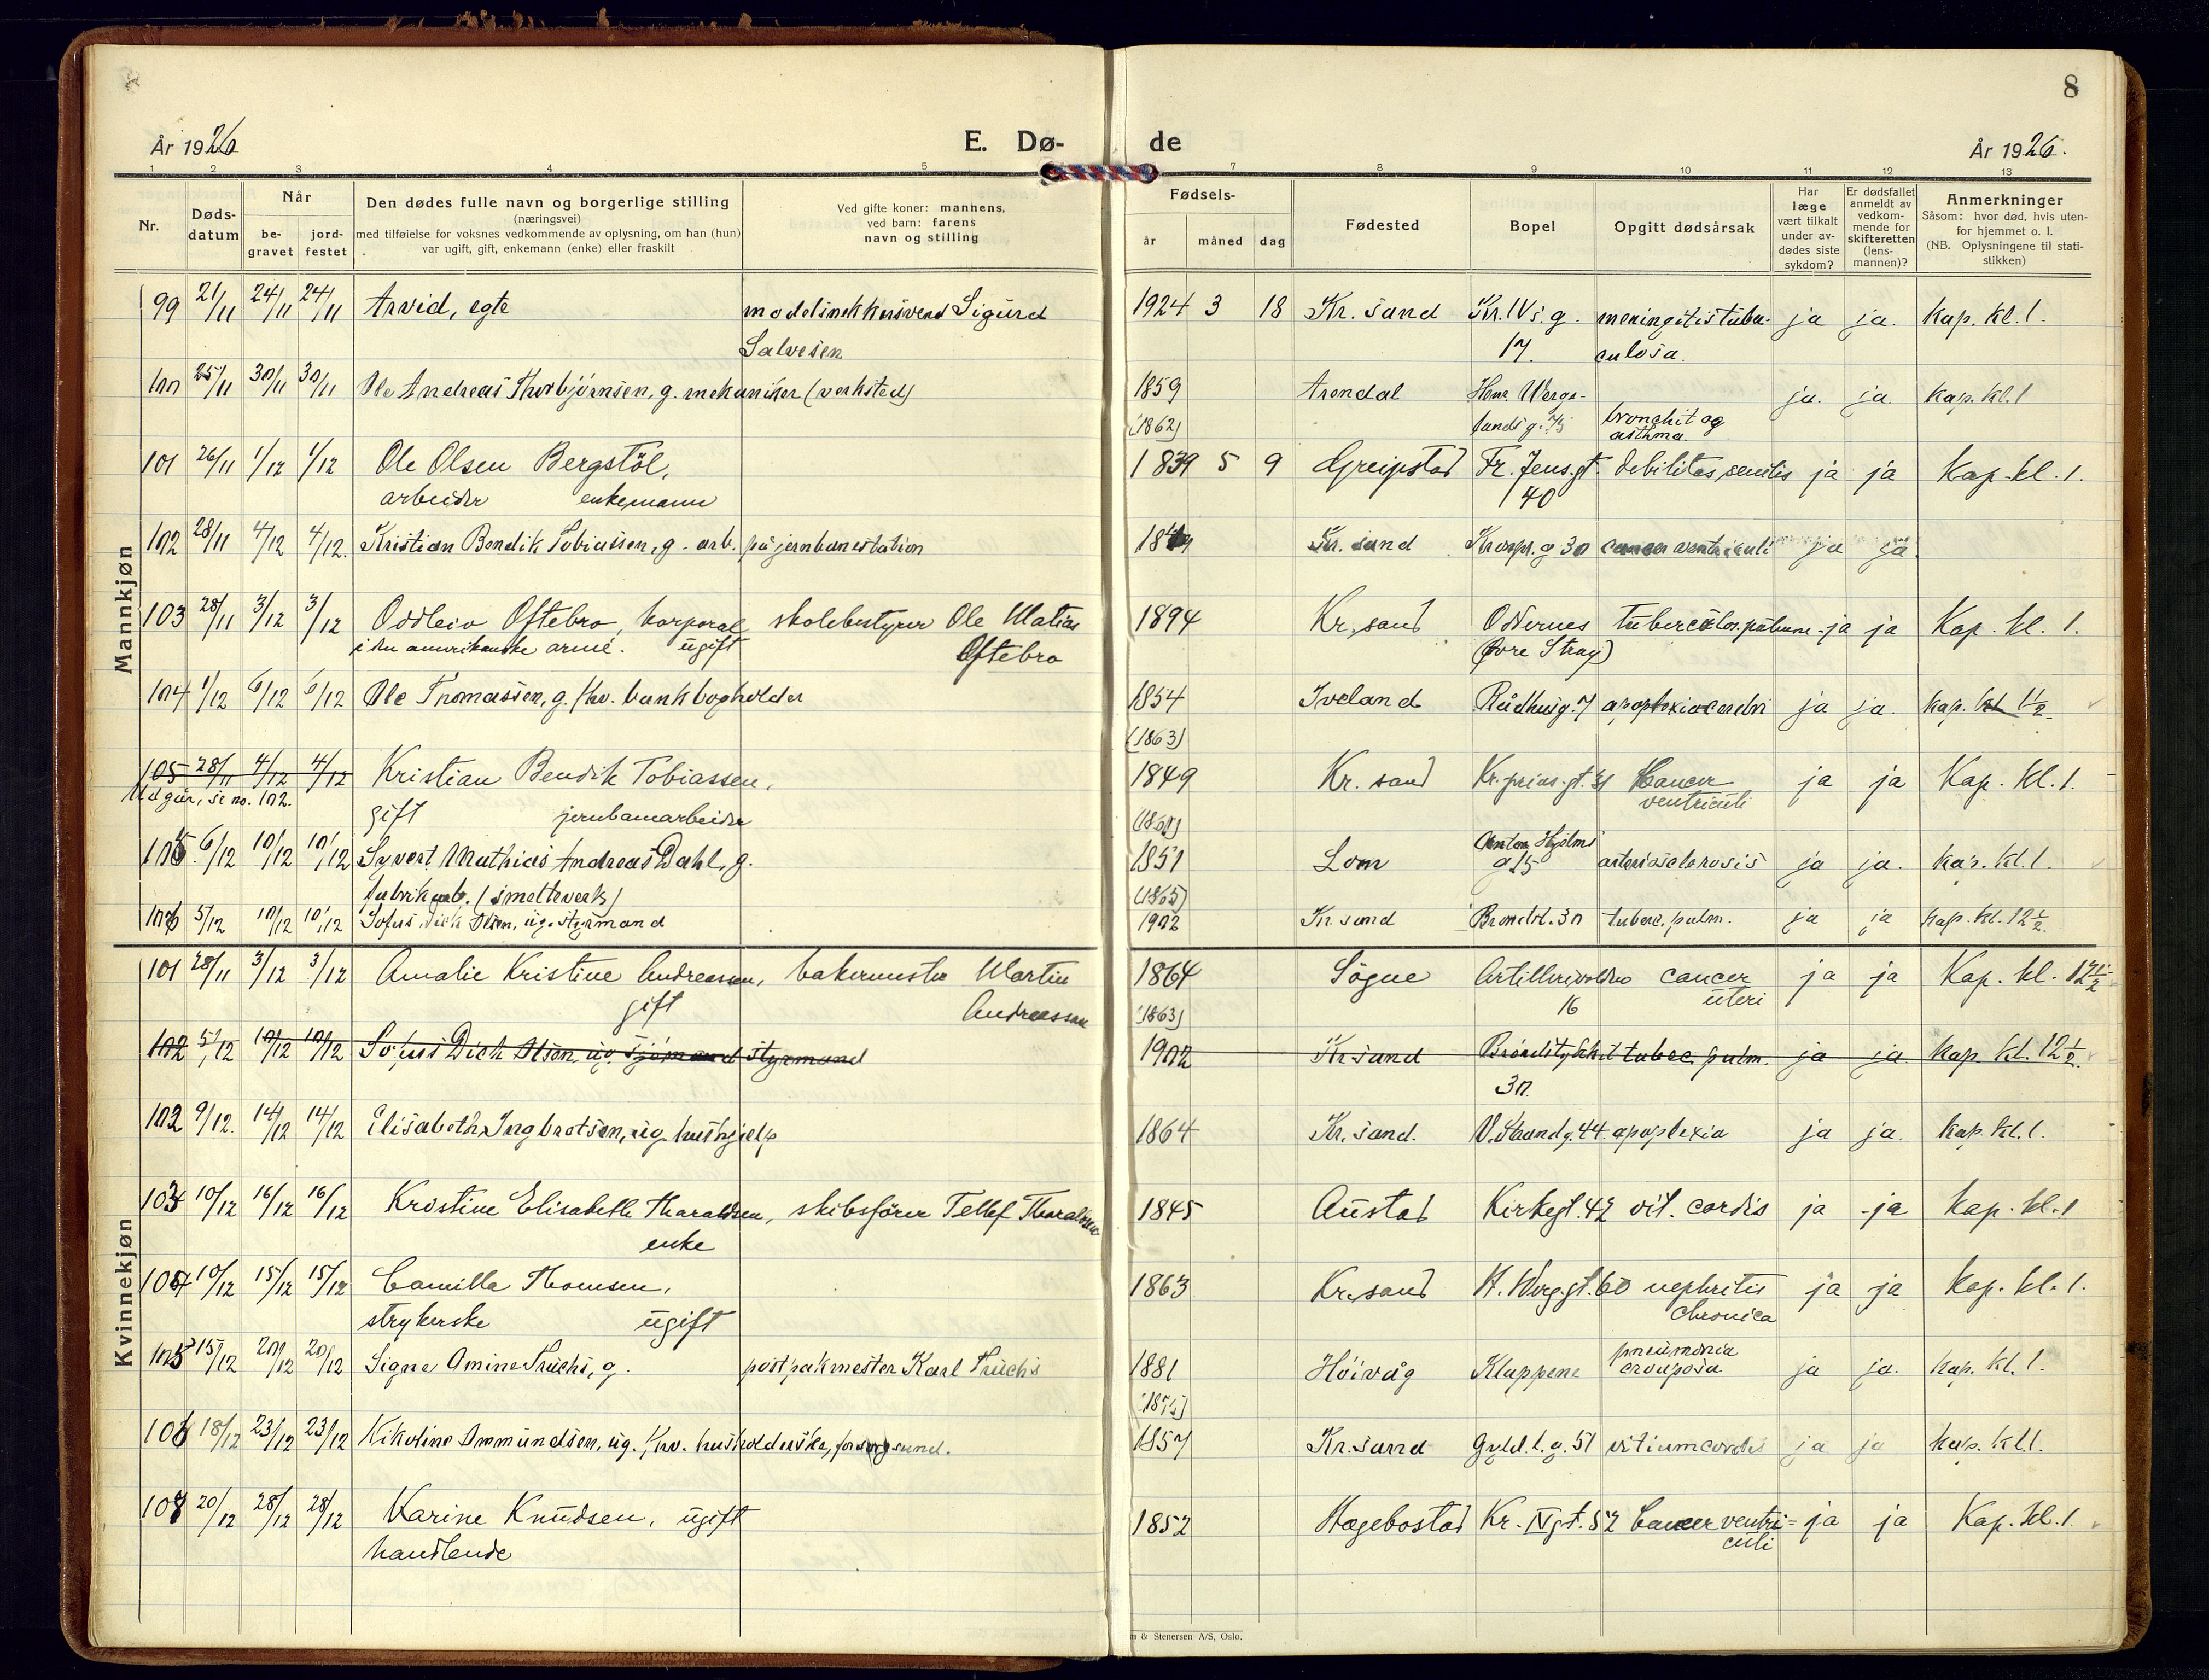 8
År 1926
E. Dø-
de
År 1926.
1 2 3 4 5 7 8 9 10 11 12 13
Nr.
Døds-
datum
Når
be-
gravet
jord-
festet
Den dødes fulle navn og borgerlige stilling
(næringsvei)
med tilføielse for voksnes vedkommende av oplysning, om han (hun)
var ugift, gift, enkemann (enke) eller fraskilt
Ved gifte koner: mannens,
ved barn: farens
navn og stilling
Fødsels-
år
måned
dag
Fødested
Bopel
Opgitt dødsårsak
Har
læge
vært tilkalt
under av-
dødes siste
sykdom?
Er dødsfallet
anmeldt av
vedkom-
mende for
skifteretten
(lens-
mannen)?
Anmerkninger
Såsom: hvor død, hvis uten-
for hjemmet o. l.
(NB. Oplysningene til stati-
stikken)
Mannkjøn
99 21/11 24/11 24/11 Arvid, egte modelsnekkersvend Sigurd 1924 3 18 Kr. sand Kr. IVs. g. meningitis tuber- ja ja. Kap. kl. 1.
Salvesen 17. culosa.
100 25/11 30/11 30/11 Ole Andreas Thorbjørnsen, g. mekaniker (verksted) 1859 Arendal Henr. Werge- ja. ja. kap. kl. 1
(1862) lands g. bronchit og
asthma.
101 26/11 1/12 1/12 Ole Olsen Bergstöl, 1839 5 9 Greipstad Fr. Jens. gt. debilitas senilis ja ja Kap. kl. 1.
arbeider enkemann 40
102 28/11 4/12 4/12. Kristian Bendik Tobiassen, g. arb. på jernbanestation Kr. sand Kronpr. g 30 cancer ventriculi ja ja.
103 28/11 3/12 3/12 Oddleiv Oftebro, korporal skolebestyrer Ole Matias 1894 Kr. sand Oddernes tuberculos. pulmn. ja ja Kap. kl. 1.
i den amerikanske armé. ugift Oftebro (Øvre Stray)
104 1/12 6/12 6/12 Ole Thomassen, g. fhv. bankbogholder 1854 Iveland Rådhusg. 7 apoplexia cerebri ja ja. kap. kl 1½.
(1863)
105 28/11 4/12 4/12 Kristian Bendik Tobiassen, 1849 Kr. sand Kr. prins. gt. 31 Cancer ja ja Kap. kl. 1.
Utgår, se no. 102. ventriculi
gift jernbanearbeider
105. 6/12 10/12 10/12 Syvert Mathias Andreas Dahl, g. 1851 Lom Anton Hjelms g 15 arteriosclerosis ja ja. kap. kl. 1.
fabrikarb. (smelteverk) (1865)
106 5/12 10/12 10/12 Sofus Dick Olsen, ug. styrmand 1902 Kr. sand Brondst. 30 tuberc. pulm. ja ja kap. kl. 12½.
Kvinnekjøn
101 28/11 3/12 3/12 Amalie Kristine Andreassen, bakermester Martin 1864 Sögne Artillerivolden cancer ja ja Kap. kl. 12½
gift Andreassen (1863) 16 uteri
102 5/12 10/12 10/12 Sofus Dick Olsen, ug. sjömand styrmand 1902 Kr. sand tuberc. pulm. ja ja kap. kl. 12½.
30.
102 9/12. 14/12 14/12 Elisabeth Ingbretsen, ug. hushjelp 1864 Kr. sand. V. Strandg. 44. apoplexia ja ja. kap. kl. 1.
103 10/12 16/12 16/12 Kristine Elisabeth Tharaldsen, skibsfører Tellef Tharaldsen 1845 Austad Kirkegt. 42 vit. cordis ja ja Kap. kl. 1
enke
104 10/12 15/12 15/12 Camilla Thomsen, 1863 Kr. sand H. Werg. gt. 60 nephritis ja ja Kap. kl. 1.
strykerske ugift chronica
105 15/12 20/12 20/12 Signe Omine Fuchs, g. postpakmester Karl Fuchs 1881 Höivåg Kluppene pneumonia crouposa ja ja. kap. kl. 1.
106 18/12 23/12 23/12 Nikoline Ammundsen, ug. fhv. husholderske, 1857 Kr. sand Gyld. l. g. 51 vitium cordis ja ja kap. kl. 1.
107 20/12 28/12 28/12 Karine Knudsen, ugift 1852 Hægebostad Kr. IVgt. 52 Cancer ventri- ja ja Kap. kl. 1.
handlende culi
& Stenersen A/S, Oslo.